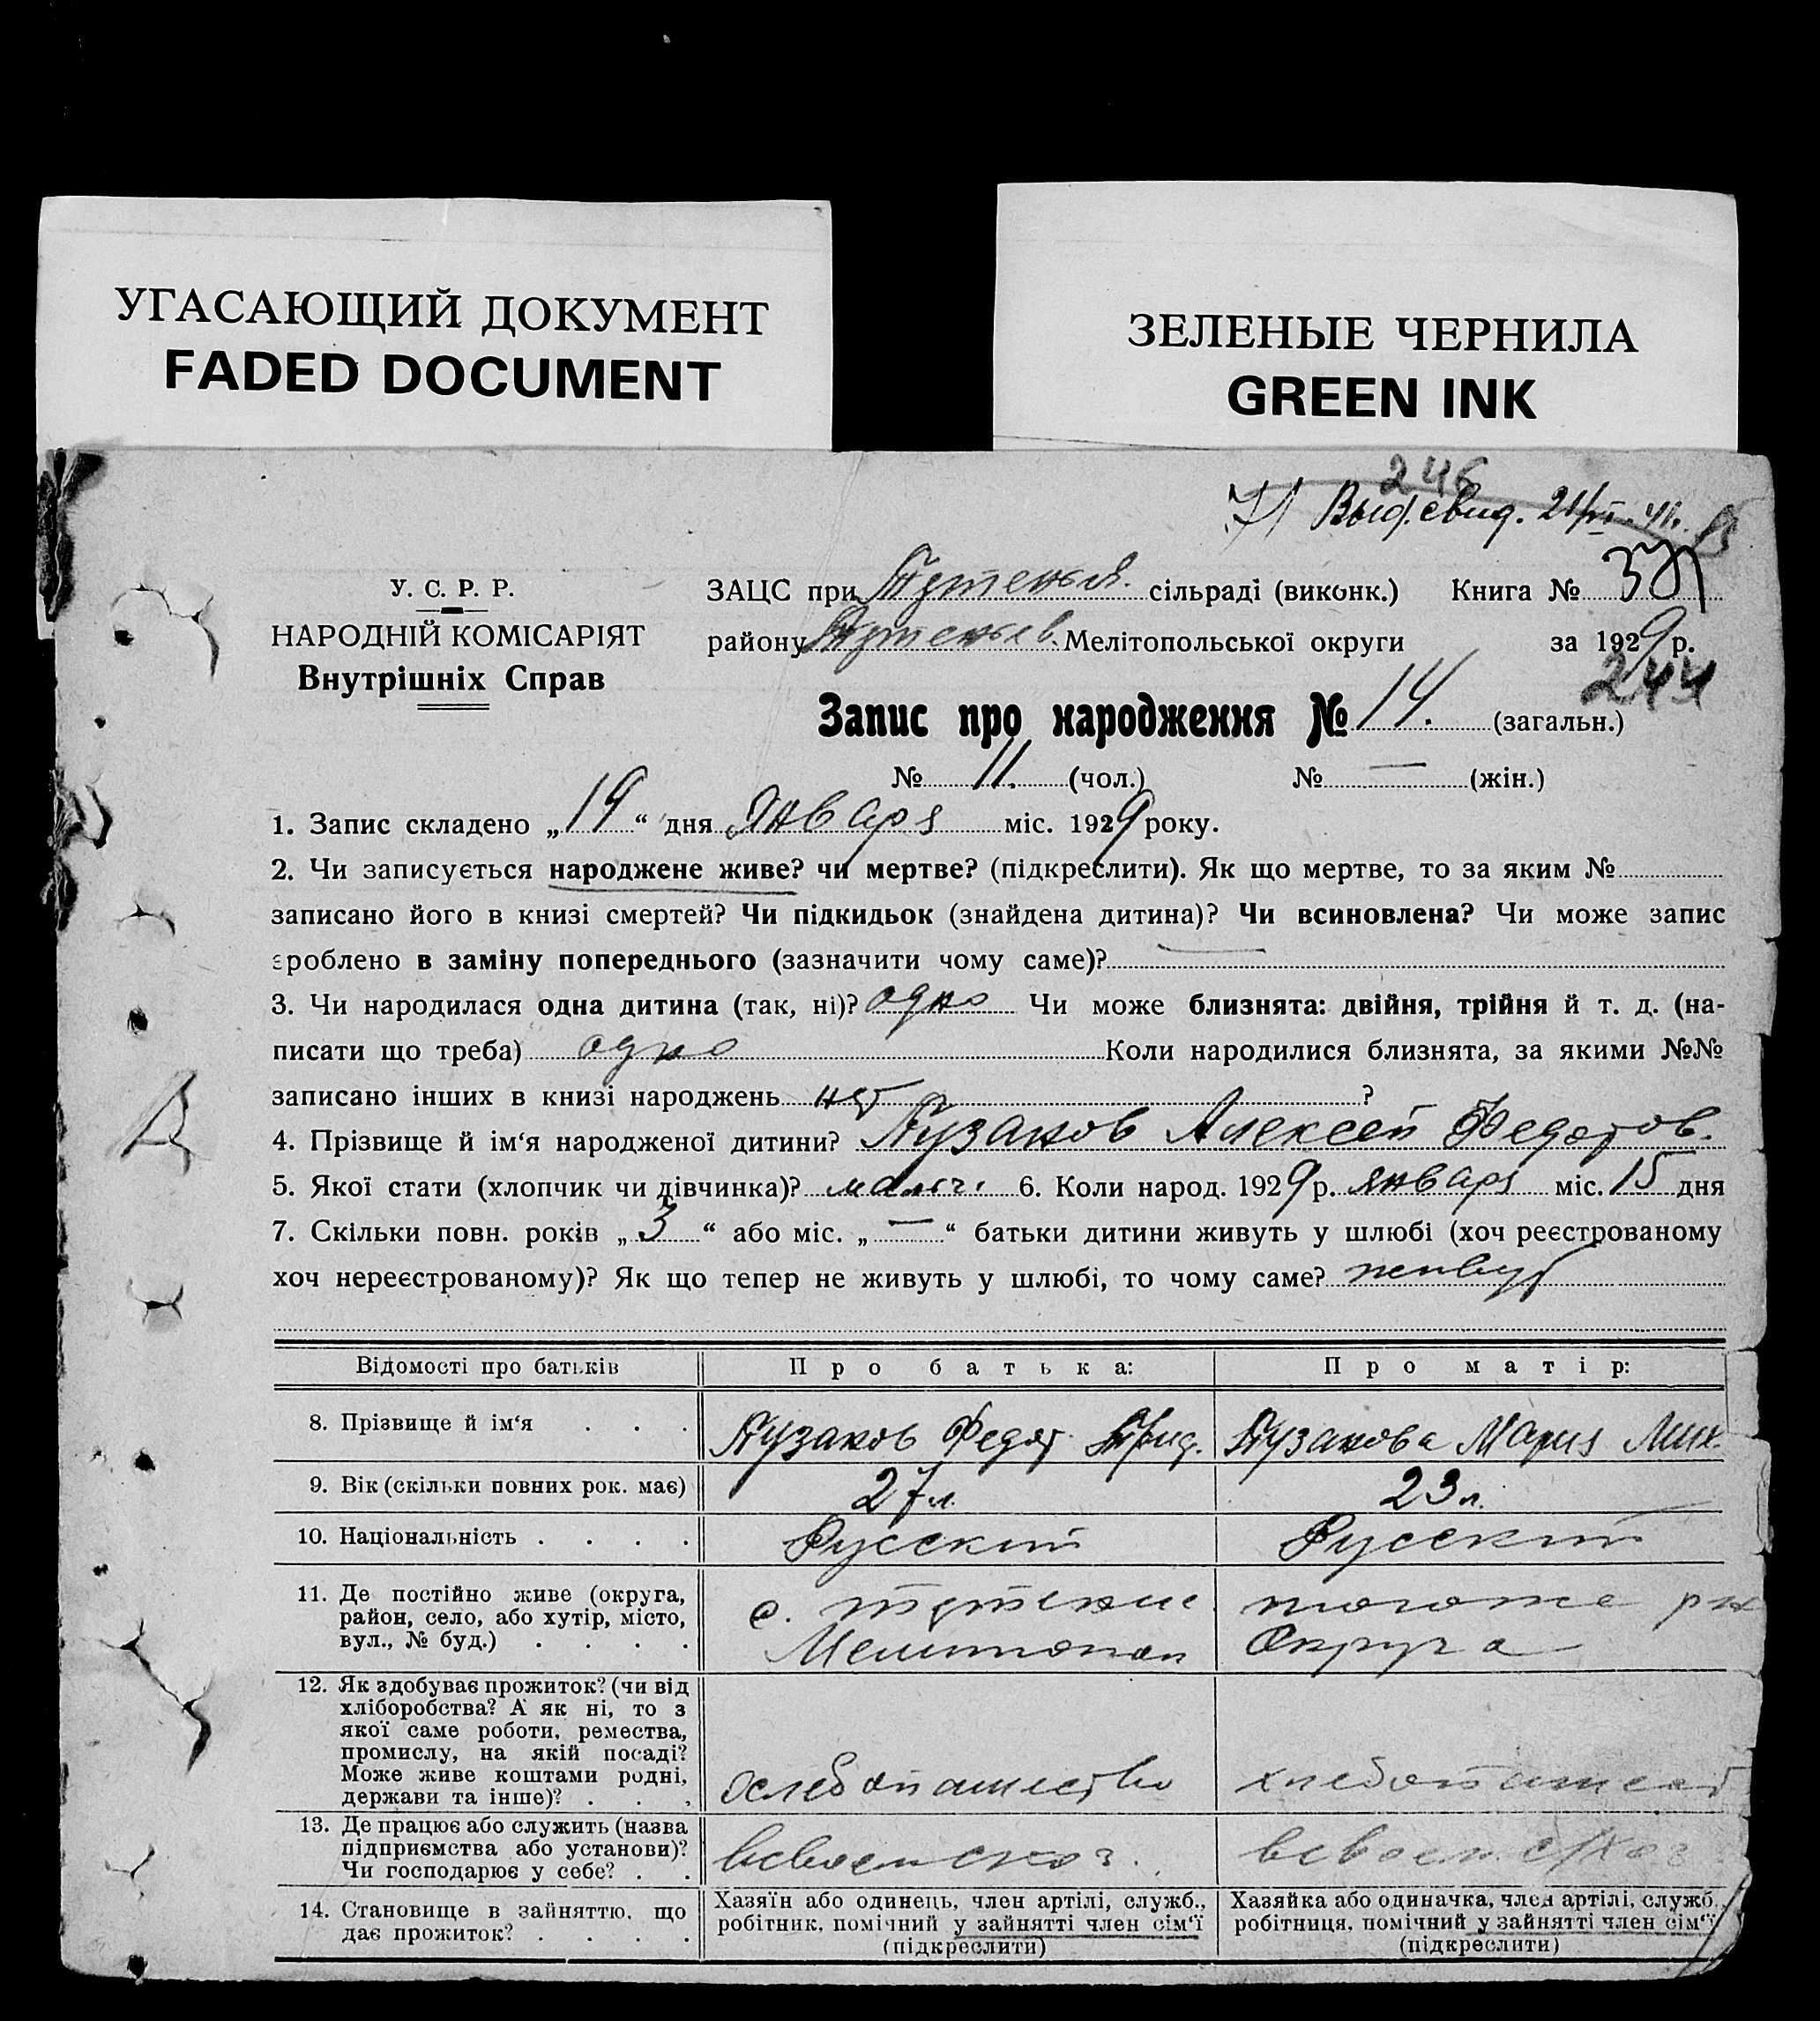 УГАСАЮЩИЙ ДОКУМЕНТ
FADED DOCUMENT
ЗЕЛЕНЫЕ ЧЕРНИЛА
GREEN INK
246
Выд. свид. 21/VI. 41.
У. С. Р. Р.
НАРОДНІЙ КОМІСАРІЯТ
Внутрішніх Справ
ЗАЦС при сільраді (виконк.) Книга №
району Мелітопольської округи за 1929 р.
244
Запис про народження № 14. (загальн.)
№ 11. (чол.) № — (жін.)
1. Запис складено „19“ дня Января міс. 1929 року.
2. Чи записується народжене живе? чи мертве? (підкреслити). Як що мертве, то за яким №
записано його в книзі смертей? Чи підкидьок (знайдена дитина)? Чи всиновлена? Чи може запис
зроблено в заміну попереднього (зазначити чому саме)? —
3. Чи народилася одна дитина (так, ні)? одно Чи може близнята: двійня, трійня й т. д. (на-
писати що треба) одно Коли народилися близнята, за якими №№
записано інших в книзі народжень нет ?
4. Прізвище й ім‘я народженої дитини? Пузаков Алексей Федотов.
5. Якої стати (хлопчик чи дівчинка)? мальч. 6. Коли народ. 1929 р. января міс. 15 дня
7. Скільки повн. років „3“ або міс. „—“ батьки дитини живуть у шлюбі (хоч реєстрованому
хоч нереєстрованому)? Як що тепер не живуть у шлюбі, то чому саме? живут
Відомості про батьків Про батька: Про матір:
8. Прізвище й ім‘я . . . Пузаков Федот Пузакова Мария Мих.
9. Вік (скільки повних рок. має) 27 л. 23 л.
10. Національність . . . . Русский Русский
11. Де постійно живе (округа,
район, село, або хутір, місто,
вул., № буд.) . . . .
с. тогоже
Мелитопол Округа
12. Як здобуває прожиток? (чи від
хліборобства? А як ні, то з
якої саме роботи, ремества,
промислу, на якій посаді?
Може живе коштами родні,
держави та інше)? . . .
хлебопашество хлебопашест
13. Де працює або служить (назва
підприємства або установи)?
Чи господарює у себе? . .
всвоем схоз. всвоем с/хоз
14. Становище в зайняттю, що
дає прожиток? . . . .
Хазяїн або одинець, член артілі, служб.,
робітник, помічний у зайнятті член сім‘ї
(підкреслити)
Хазяйка або одиначка, член артілі, служб.,
робітниця, помічний у зайнятті член сім‘ї
(підкреслити)